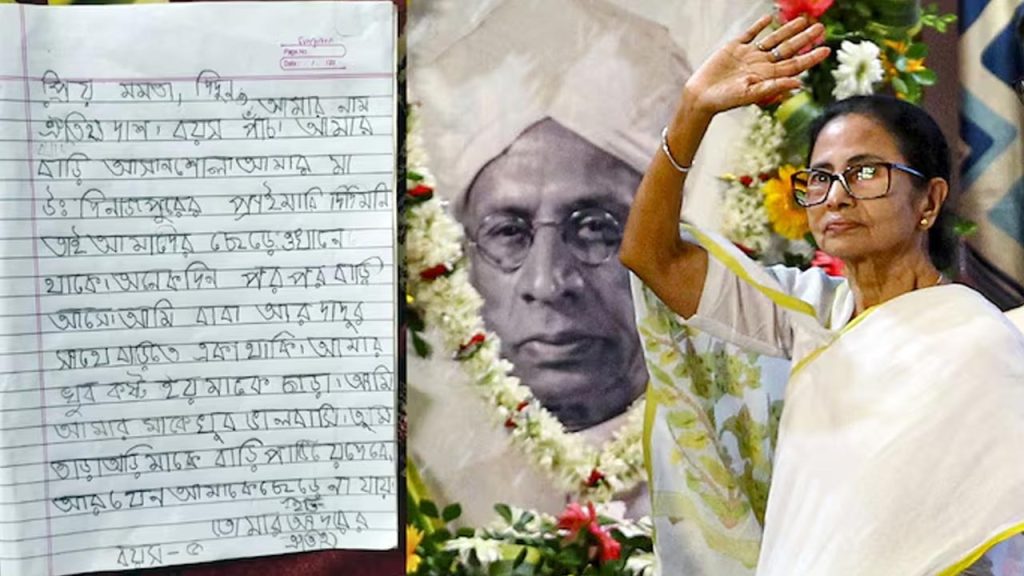 Evergreen
Page No.
Date: / /20
প্রিয় মমতা, দিদুন,
আমার নাম
ঐতিহ্য দাশ। বয়স পাঁচ। আমার
বাড়ি আসানশোল। আমার মা
উঃ দিনাজপুরের প্রাইমারি দিদিমনি
তাই আমাদের ছেড়ে ওখানে
থাকে। অনেকদিন পর পর বাড়ি
আসে। আমি বাবা আর দাদুর
সাথে বাড়িতে একা থাকি। আমার
খুব কষ্ট হয় মাকে ছাড়া। আমি
আমার মাকে খুব ভালবাসি। তুমি
তাড়াতাড়ি মাকে বাড়ি পাঠিয়ে দেবে
আর যেন আমাকে ছেড়ে না যায়
তোমার আদরের
ঐতিহ্য
বয়স - ৫